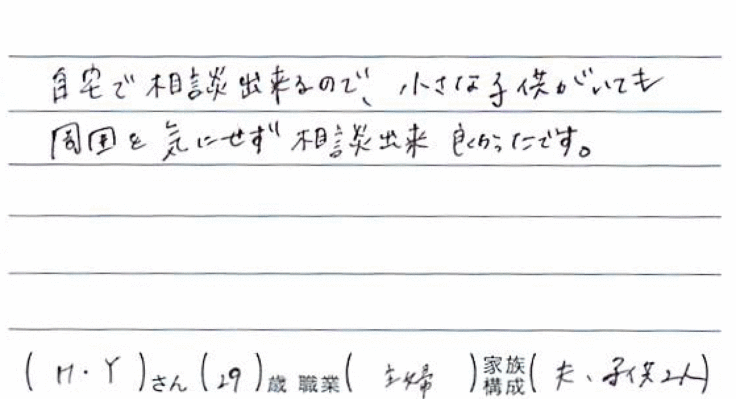 自宅で相談出来るので、小さな子供がいても
周囲を気にせず相談出来良かったです。
(M・Y)さん(29)歳 職業(主婦)家族構成(夫、子供2人)